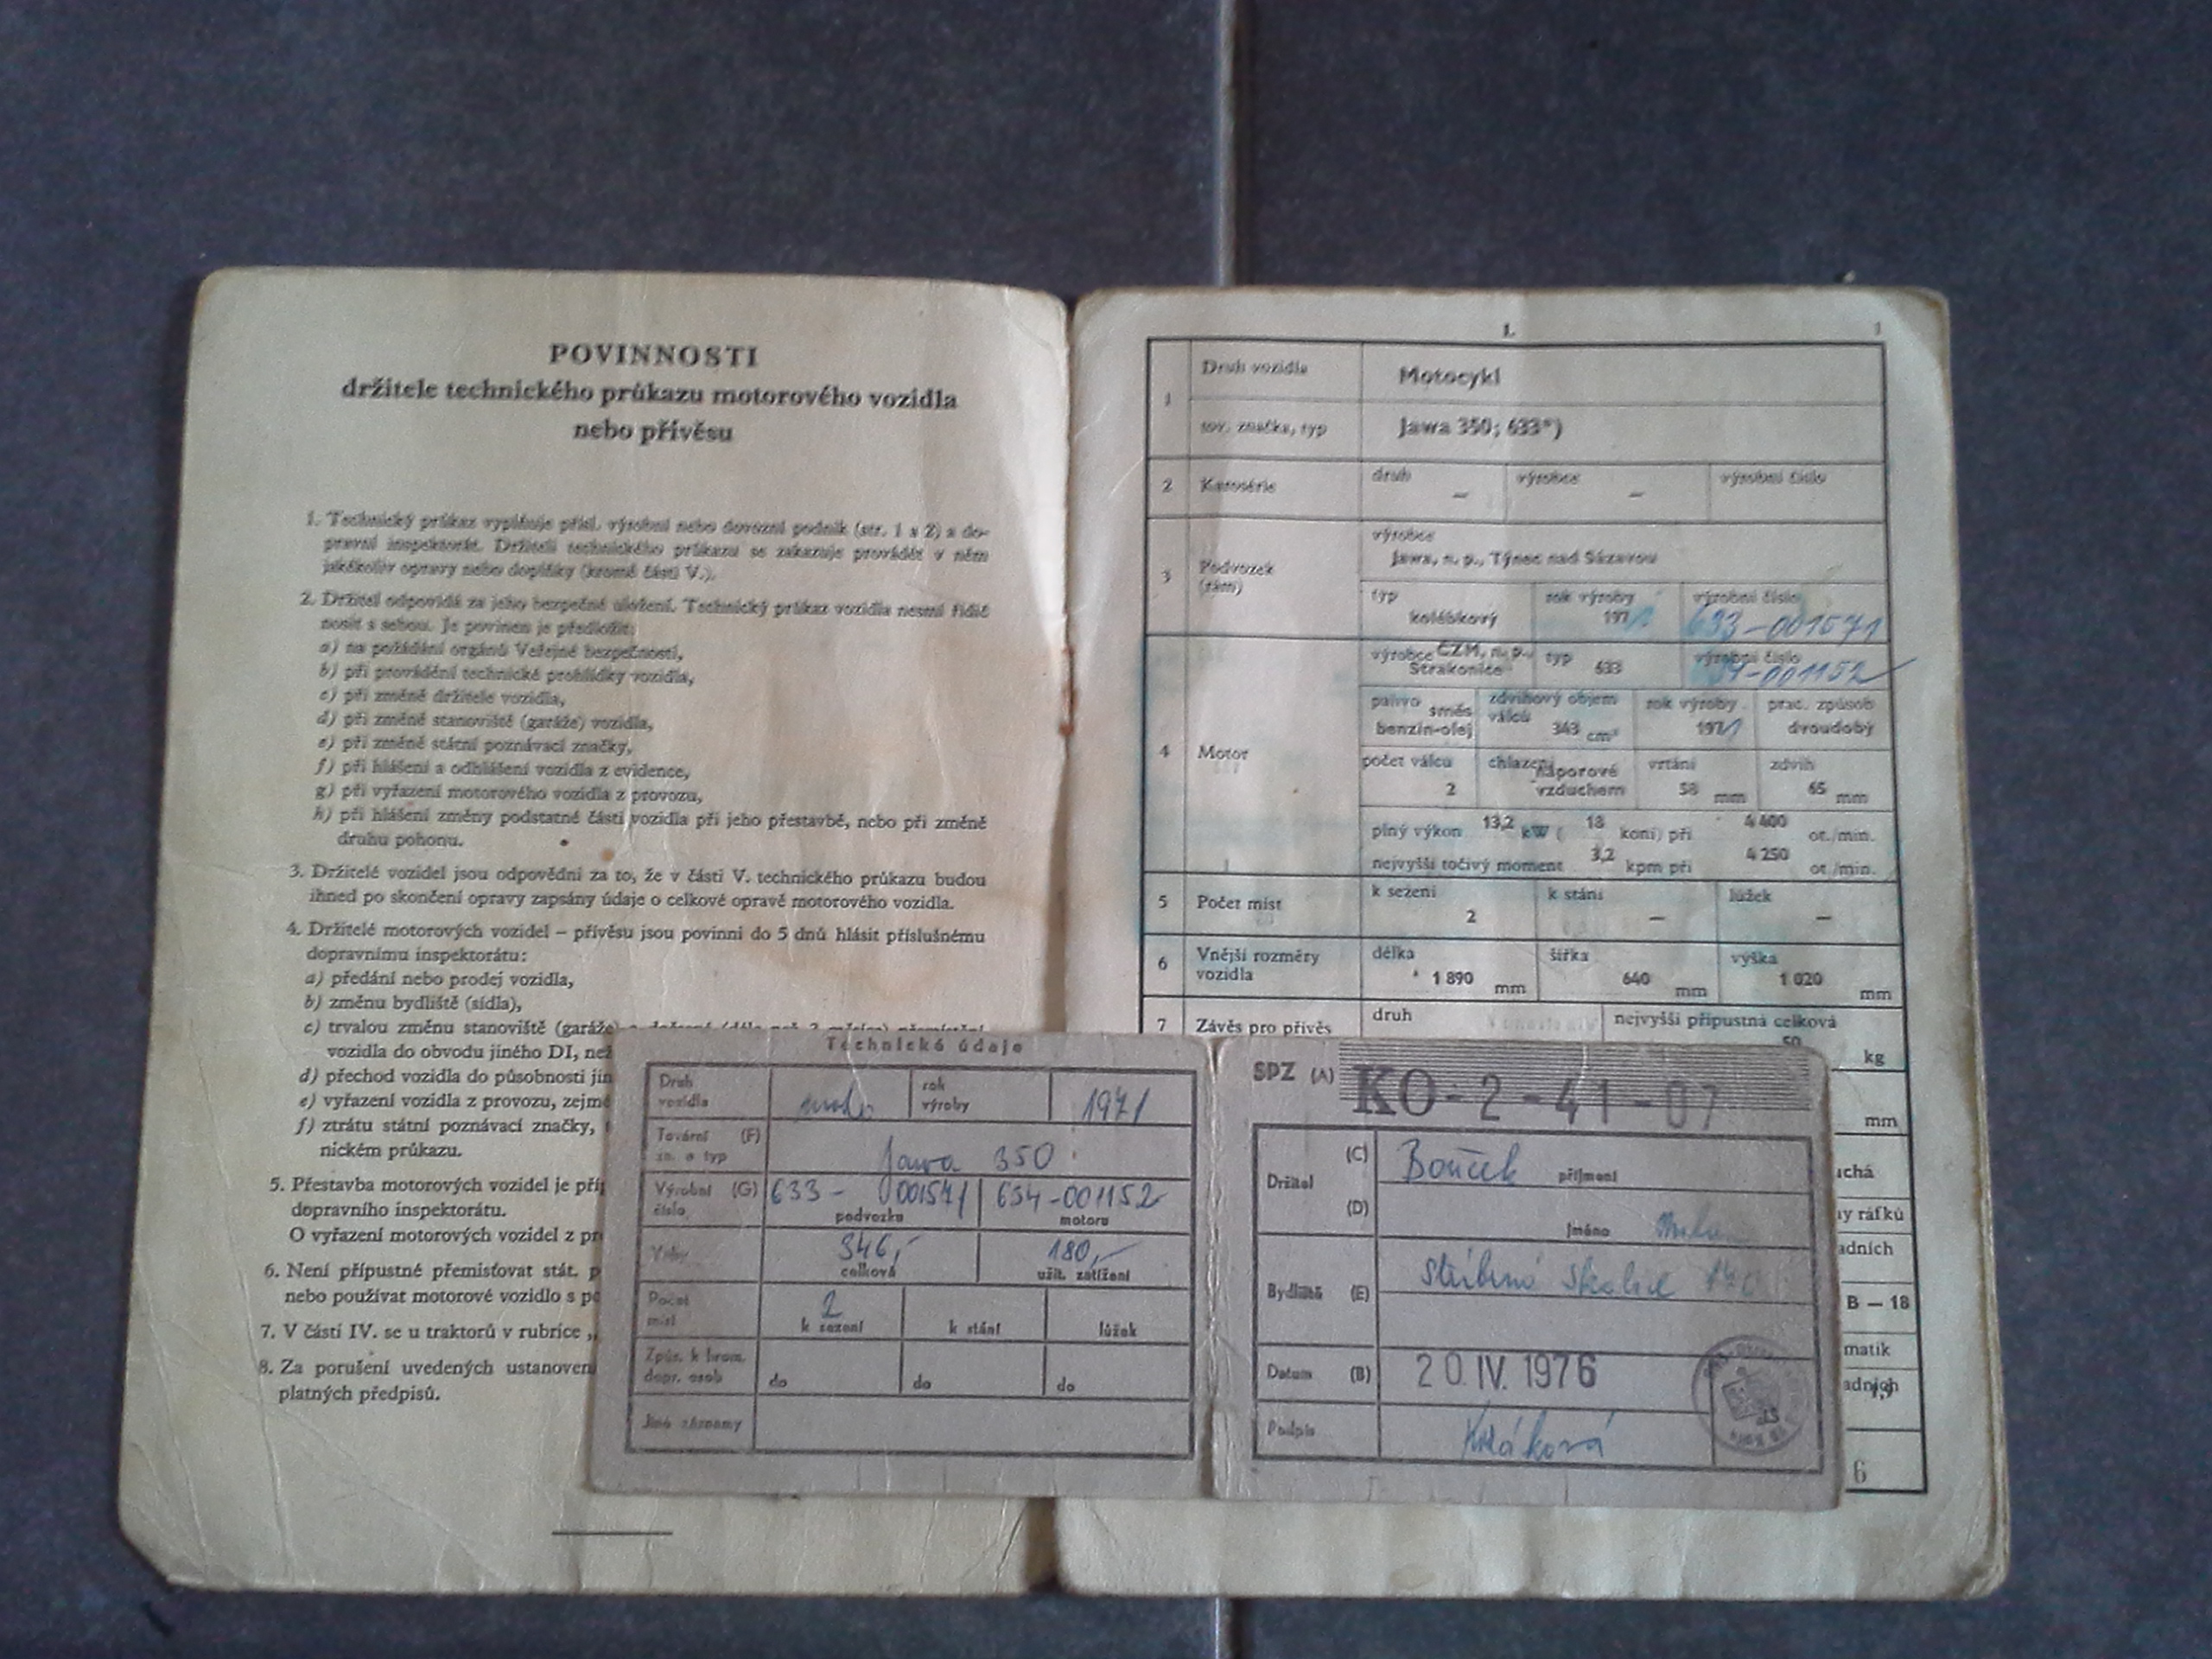 POVINNOSTI
držitele technického průkazu motorového vozidla
nebo přívěsu
1. Technický průkaz vyplňuje přísl. výrobní nebo dovozní podnik (str. 1 a 2) a do-
pravní inspektorát. Držiteli technického průkazu se zakazuje provádět v něm
jakékoliv opravy nebo doplňky (kromě části V.).
2. Držitel odpovídá za jeho bezpečné uložení. Technický průkaz vozidla nesmí řidič
nosit s sebou. Je povinen je předložit:
a) na požádání orgánů Veřejné bezpečnosti,
b) při provádění technické prohlídky vozidla,
c) při změně držitele vozidla,
d) při změně stanoviště (garáže) vozidla,
e) při změně státní poznávací značky,
f) při hlášení a odhlášení vozidla z evidence,
g) při vyřazení motorového vozidla z provozu,
h) při hlášení změny podstatné části vozidla při jeho přestavbě, nebo při změně
druhu pohonu.
3. Držitelé vozidel jsou odpovědni za to, že v části V. technického průkazu budou
ihned po skončení opravy zapsány údaje o celkové opravě motorového vozidla.
4. Držitelé motorových vozidel – přívěsu jsou povinni do 5 dnů hlásit příslušnému
dopravnímu inspektorátu:
a) předání nebo prodej vozidla,
b) změnu bydliště (sídla),
c) trvalou změnu stanoviště (garáže)
vozidla do obvodu jiného DI, než
d) přechod vozidla do působnosti jin
e) vyřazení vozidla z provozu, zejmé
f) ztrátu státní poznávací značky,
nickém průkazu.
5. Přestavba motorových vozidel je pří
dopravního inspektorátu.
O vyřazení motorových vozidel z pr
6. Není přípustné přemisťovat stát. p
nebo používat motorové vozidlo s po
7. V části IV. se u traktorů v rubrice „
8. Za porušení uvedených ustanoven
platných předpisů.
I. 1
1 Druh vozidla Motocykl
tov. značka, typ Jawa 350; 633*)
2 Karosérie druh – výrobce – výrobní číslo
3 Podvozek (rám) výrobce
Jawa, n. p., Týnec nad Sázavou
typ rok výroby výrobní číslo
kolébkový 1971 633-001571
4 Motor výrobce ČZM, n. p., Strakonice typ 633 výrobní číslo 634-001152
palivo směs benzín-olej zdvihový objem válců 343 cm³ rok výroby 1971 prac. způsob dvoudobý
počet válců 2 chlazení náporové vzduchem vrtání 58 mm zdvih 65 mm
plný výkon 13,2 kW ( 18 koní) při 4 400 ot./min.
nejvyšší točivý moment 3,2 kpm při 4 250 ot./min.
5 Počet míst k sezení 2 k stání – lůžek –
6 Vnější rozměry vozidla délka 1 890 mm šířka 640 mm výška 1 020 mm
7 Závěs pro přívěs druh nejvyšší přípustná celková
50 kg
mm
uchá
y ráfků
adních
B – 18
matik
adních
6
Technické údaje
Druh vozidla rok výroby 1971
Tovární zn. a typ (F) Jawa 350
Výrobní číslo (G) 633- 001571 634-001152
podvozku motoru
Váhy 346,- 180,-
celková užit. zatížení
Počet míst 2
k sezení k stání lůžek
Způs. k hrom. dopr. osob do do do
Jiné záznamy
SPZ (A) KO-2-41-07
Držitel (C) Bouček příjmení
(D) jméno
Bydliště (E) Stříbrná Skalice
Datum (B) 20. IV. 1976
Podpis Králová